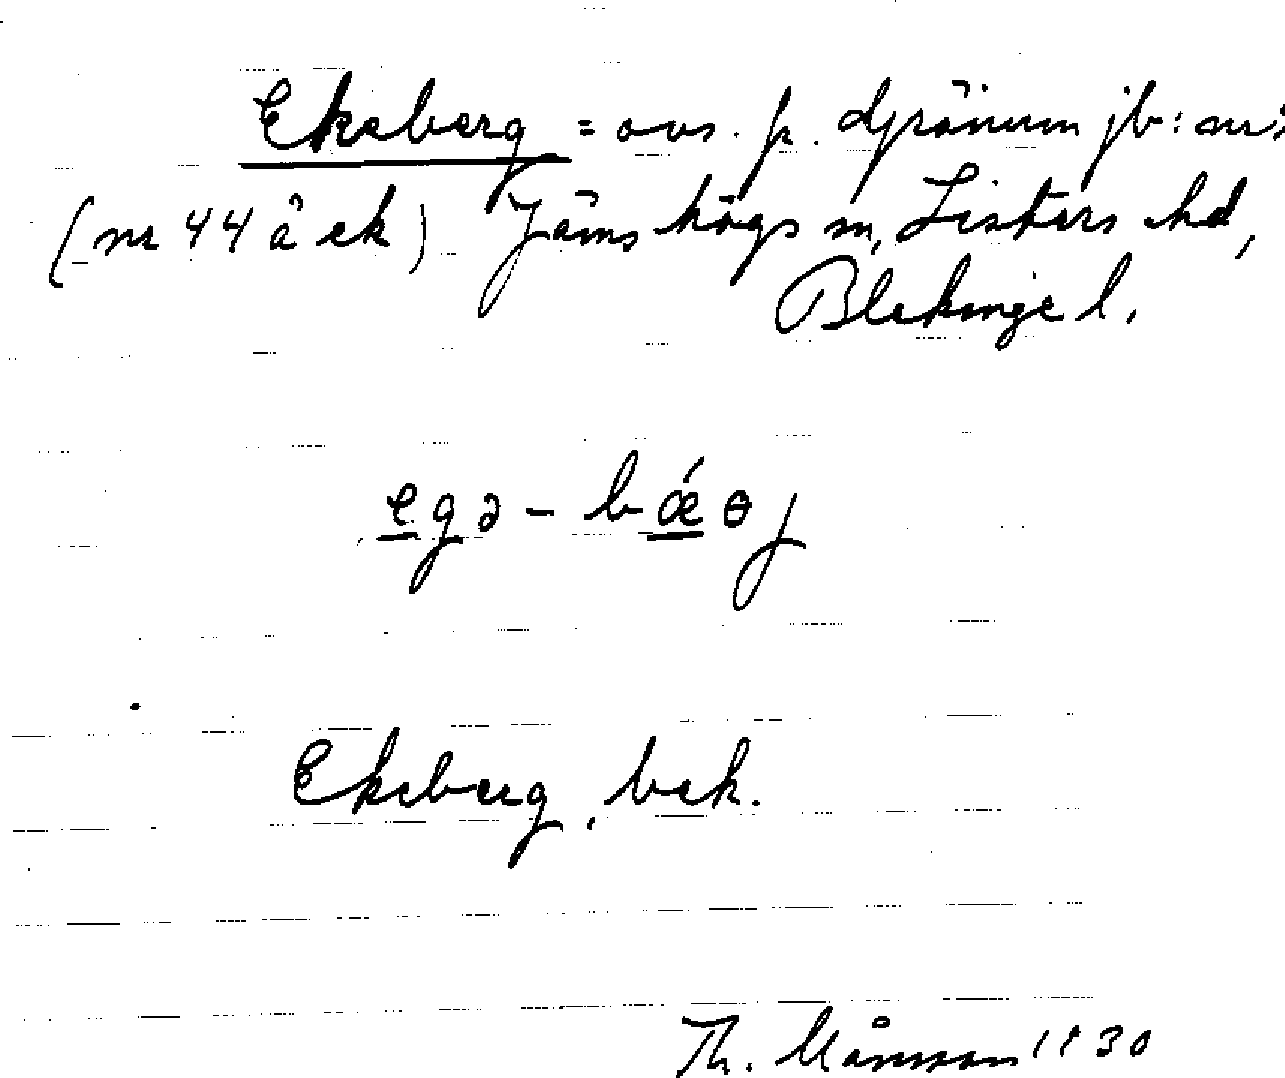 Ekeberg = avs. p. Djränum jb: nr
(nr 44 å ek) Jämshögs sn, Listers hd,
Blekinge l.
egə - bǽɵj
Ekeberg, bek.
Th. Månsson 1930